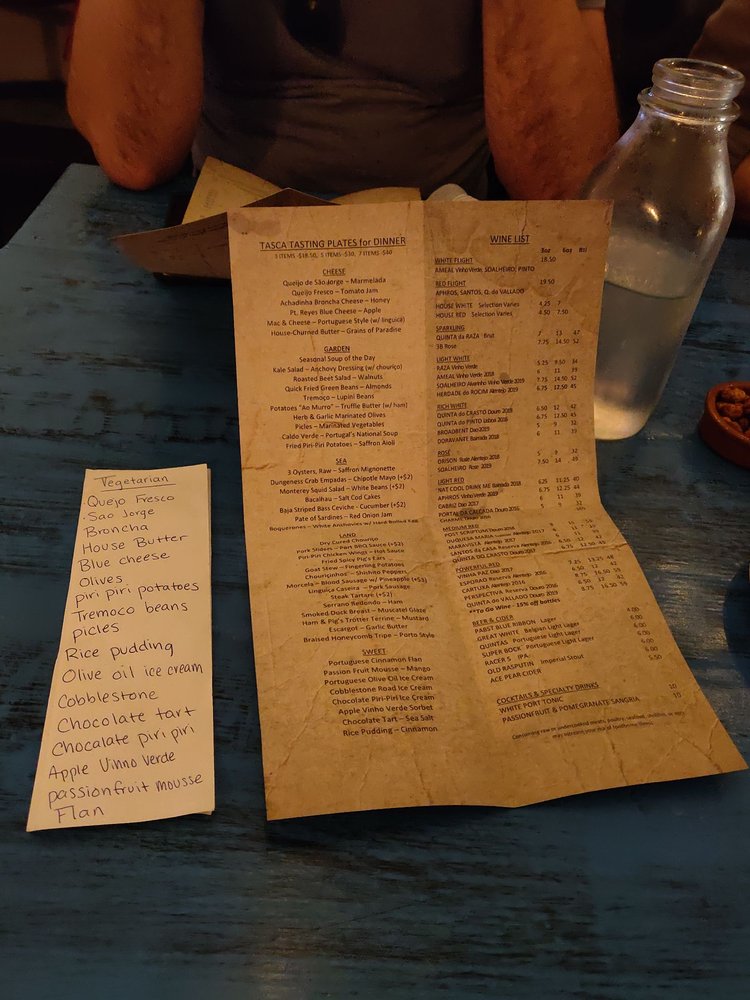 Vegetarian
Quejo Fresco
Sao Jorge
Broncha
House Butter
Blue cheese
Olives
piri piri potatoes
Tremoco beans
pickles
Rice pudding
Olive oil ice cream
Cobblestone
Chocolate tart
Chocalate piri piri
Apple Vinno Verde
passionfruit mousse
Flan
TASCA TASTING PLATES for DINNER
3 ITEMS -$18.50, 5 ITEMS-$30, 7 ITEMS-$40
CHEESE
Queijo de São Jorge – Marmelada
Queijo Fresco – Tomato Jam
Achadinha Broncha Cheese – Honey
Pt. Reyes Blue Cheese – Apple
Mac & Cheese – Portuguese Style (w/ linguica)
House-Churned Butter – Grains of Paradise
GARDEN
Seasonal Soup of the Day
Kale Salad – Anchovy Dressing (w/ chouriço)
Roasted Beet Salad – Walnuts
Quick Fried Green Beans – Almonds
Tremoço – Lupini Beans
Potatoes "Ao Murro" – Truffle Butter (w/ ham)
Herb & Garlic Marinated Olives
Pickles – Marinated Vegetables
Caldo Verde – Portugal's National Soup
Fried Piri-Piri Potatoes – Saffron Aioli
SEA
3 Oysters, Raw – Saffron Mignonette
Dungeness Crab Empadas – Chipotle Mayo (+$2)
Monterey Squid Salad – White Beans (+$2)
Bacalhau – Salt Cod Cakes
Baja Striped Bass Ceviche - Cucumber (+$2)
Pate of Sardines – Red Onion Jam
Boquerones – White Anchovies w/ Hard Boiled Egg
LAND
Dry Cured Chouriço
Pork Sliders – Port BBQ Sauce (+$2)
Piri-Piri Chicken Wings – Hot Sauce
Fried Spicy Pig's Ears
Goat Stew – Fingerling Potatoes
Chouriçinhos – Shishito Peppers
Morcela – Blood Sausage w/ Pineapple (+$3)
Linguiça Caseira – Pork Sausage
Steak Tartare (+$2)
Serrano Redondo – Ham
Smoked Duck Breast – Muscatel Glaze
Ham & Pig's Trotter Terrine – Mustard
Escargot – Garlic Butter
Braised Honeycomb Tripe – Porto Style
SWEET
Portuguese Cinnamon Flan
Passion Fruit Mousse – Mango
Portuguese Olive Oil Ice Cream
Cobblestone Road Ice Cream
Chocolate Piri-Piri Ice Cream
Apple Vinho Verde Sorbet
Chocolate Tart – Sea Salt
Rice Pudding – Cinnamon
WINE LIST
3oz 5oz Btl
WHITE FLIGHT 18.50
AMEAL Vinho Verde, SOALHEIRO, PINTO
RED FLIGHT 19.50
APHROS, SANTOS, Q. do VALLADO
HOUSE WHITE Selection Varies 4.25 7
HOUSE RED Selection Varies 4.50 7.50
SPARKLING
QUINTA da RAZA Brut 7 13 47
3B Rose 7.75 14.50 52
LIGHT WHITE
RAZA Vinho Verde 5.25 9.50 34
AMEAL Vinho Verde 2018 6 11 39
SOALHEIRO Alvarinho Vinho Verde 2019 7.75 14.50 52
HERDADE do ROCIM Alentejo 2018 6.75 12.50 45
RICH WHITE
QUINTA do CRASTO Douro 2018 6.50 12 42
QUINTA do PINTO Lisboa 2016 6.75 12.50 45
BROADBENT Dao 2019 5 9 32
DORAVANTE Bairrada 2018 6 11 39
ROSÉ
ORISON Rose Alentejo 2018 5 9 32
SOALHEIRO Rose 2019 7.50 14 49
LIGHT RED
NAT COOL DRINK ME Bairrada 2018 6.25 11.25 40
APHROS Vinho Verde 2019 6.75 12.25 44
CABRIZ Dao 2017 6 11 39
PORTAL DA CALÇADA 5 9 32
MEDIUM RED
POST SCRIPTUM Douro 2016
DUQUESA MARIA Alentejo 2017
MARAVILTA Alentejo 2017
SANTOS da CASA Reserva Alentejo 2016
QUINTA DO CRASTO Douro 2017 6.75 12.50 45
POWERFUL RED
VINHA PAZ Dao 2017 7.25 13.25 48
ESPORAO Reserva Alentejo 2016 6.50 12 42
CARTUXA Alentejo 2016 8.75 16.50 59
PERSPECTIVA Reserva Douro 2016 6.50 12 42
QUINTA do VALLADO Douro 2019 8.75 16.50 59
**To Go Wine - 15% off bottles
BEER & CIDER
PABST BLUE RIBBON Lager 4.00
GREAT WHITE Belgian Light Lager 6.00
QUINTAS Portuguese Light Lager 6.00
SUPER BOCK Portuguese Light Lager 6.00
RACER 5 IPA 6.00
OLD RASPUTIN Imperial Stout 6.00
ACE PEAR CIDER 5.50
COCKTAILS & SPECIALTY DRINKS
WHITE PORT TONIC 10
PASSIONFRUIT & POMEGRANATE SANGRIA 10
Consuming raw or undercooked meats, poultry, seafood, shellfish, or eggs
may increase your risk of foodborne illness.